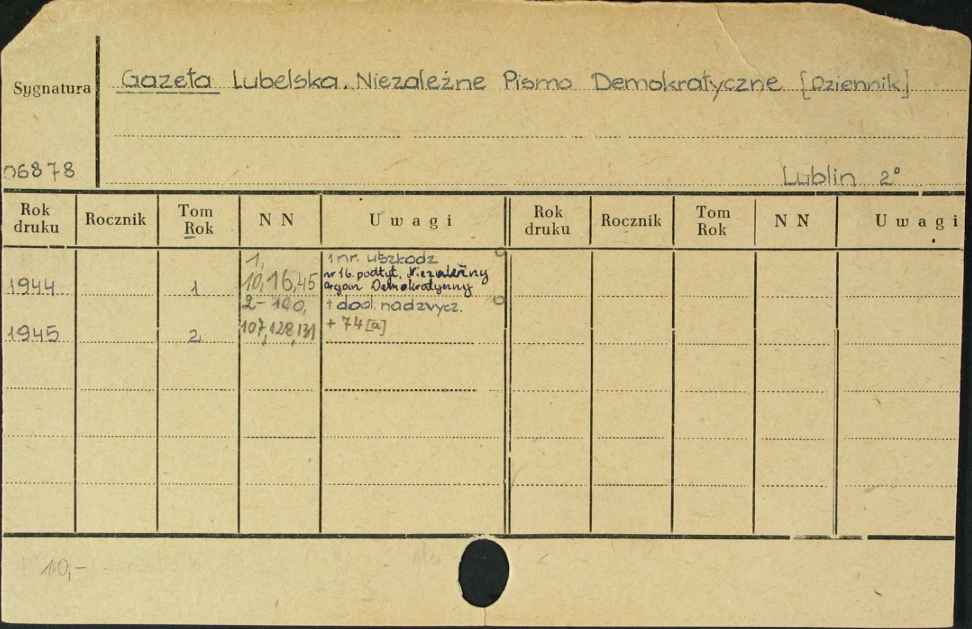 Sygnatura Gazeta Lubelska. Niezależne Pismo Demokratyczne [Dziennik]
06878 Lublin 2°
Rok druku Rocznik Tom Rok N N Uwagi Rok druku Rocznik Tom Rok N N Uwagi
1, 1 nr. uszkodz
10, 16, 45 nr 16. podtyt. Niezależny
1944 1 organ Demokratyczny
2-100, + dod. nadzwycz.
1945 2 107, 128, 131 + 74[a]
10,-